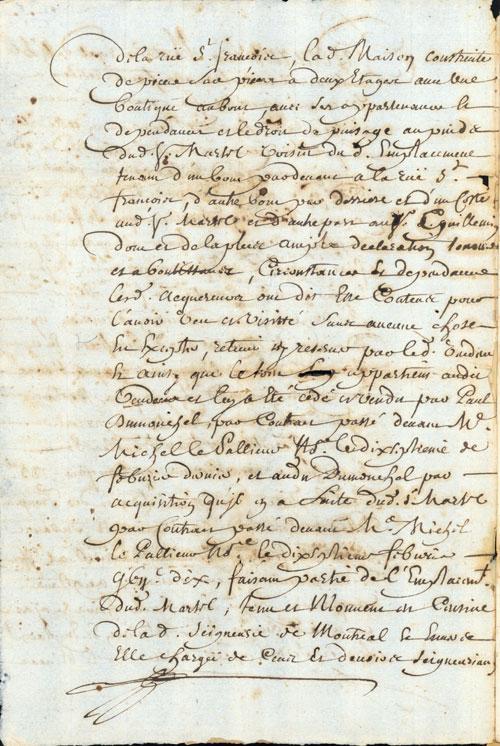 de la rüe St. francois, lad. Maison construite
de pierre sur pierre a deux Etages avec une
boutique au bout, avec ses appartenances et
dependances et le droit de puisage au puids
dud. Sr. Martel voisin du d. Emplacement
tenant d'un bout par devant a la rüe St.
francois, d'autre bout par derriere et d'un Coste
aud. Sr. Martel et d'autre part au Sr.
dont et de la plus ample declaration tenans
et aboutissans, Circonstances et dependances
lesd. acquereurs ont dit Estre Contens pour
l'avoir veu et visitté sans aucune chose
En Excepter, retenir ny reserver par led. Vendeur
Et ainsy que le tout appartient audit
Vendeur et luy a Eté cedé et vendu par Paul
Dumouchel, par Contrat passé devant Me.
Michel le Pallieur Nre. le dixseptieme de
febvrier dernier, et aud. Dumouchel par
acquisition qu'il en a faite dud. Sr. Martel
par Contrat passé devant Me. Michel
le Pallieur Nre. le dixseptieme febvrier
gbii. dix, faisant partie de l'Emplacemt.
dud. Martel, tenu et Mouvant en Censive
de la d. Seigneurie de Montreal Et Envers
Elle chargée de Cens Et droits Seigneuriaux